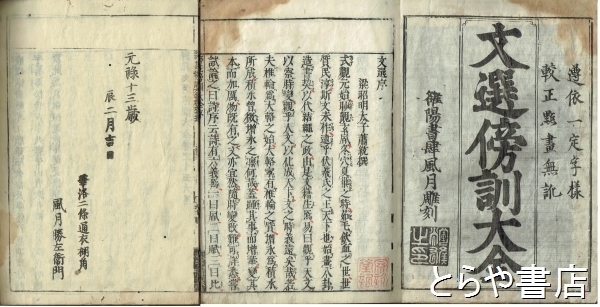 憑依一定字様
較正點畫無訛
文選傍訓大全
雒陽書肆風月雕刻
文選序
梁昭明太子蕭統撰
式觀元始眇覿玄風冬穴夏巢之時茹毛飲血之世世
質民淳斯文未作逮乎伏羲氏之王天下也始畫八卦
造書契以代結繩之政由是文籍生焉易曰觀乎天文
以察時變觀乎人文以化成天下文之時義遠矣哉若
夫椎輪爲大輅之始大輅寧有椎輪之質增冰爲積水
所成積水曾微增冰之凛何哉蓋踵其事而增華變其
本而加厲物既有之文亦宜然隨時變改難可詳悉嘗
試論之曰詩序云詩有六義焉一曰風二曰賦三曰比
元祿十三歲
辰二月吉日
華洛二條通衣棚角
風月勝左衞門
とらや書店